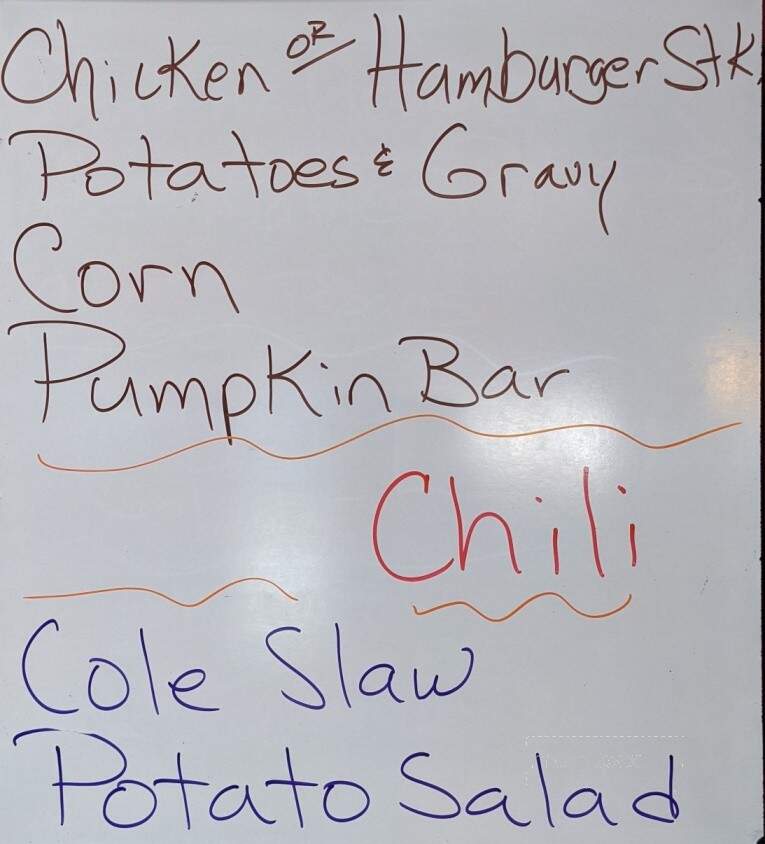 Chicken OR Hamburger Stk.
Potatoes & Gravy
Corn
Pumpkin Bar
Chili
Cole Slaw
Potato Salad